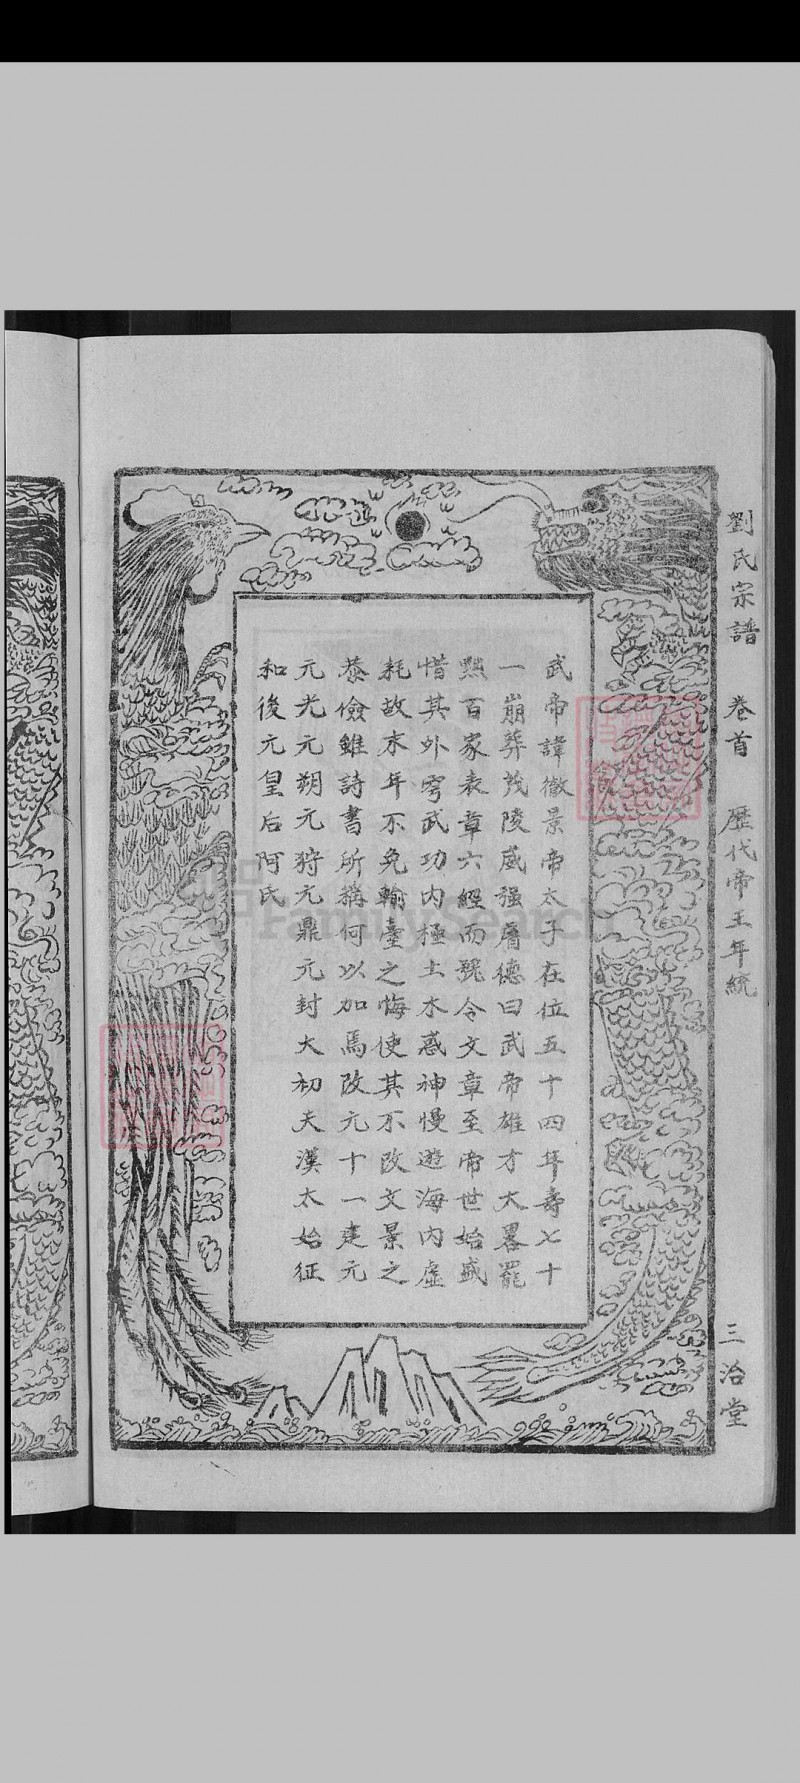 劉氏宗譜 卷首 歷代帝王年統 三治堂
武帝諱徹景帝太子在位五十四年壽七十
一崩葬茂陵威强叡德曰武帝雄才大畧罷
黜百家表章六經而號令文章至帝世始盛
惜其外窮武功内極土木惑神慢遊海内虛
耗故末年不免輪臺之悔使其不改文景之
恭儉雖詩書所稱何以加焉改元十一建元
元光元朔元狩元鼎元封太初天漢太始征
和後元皇后阿氏
FamilySearch